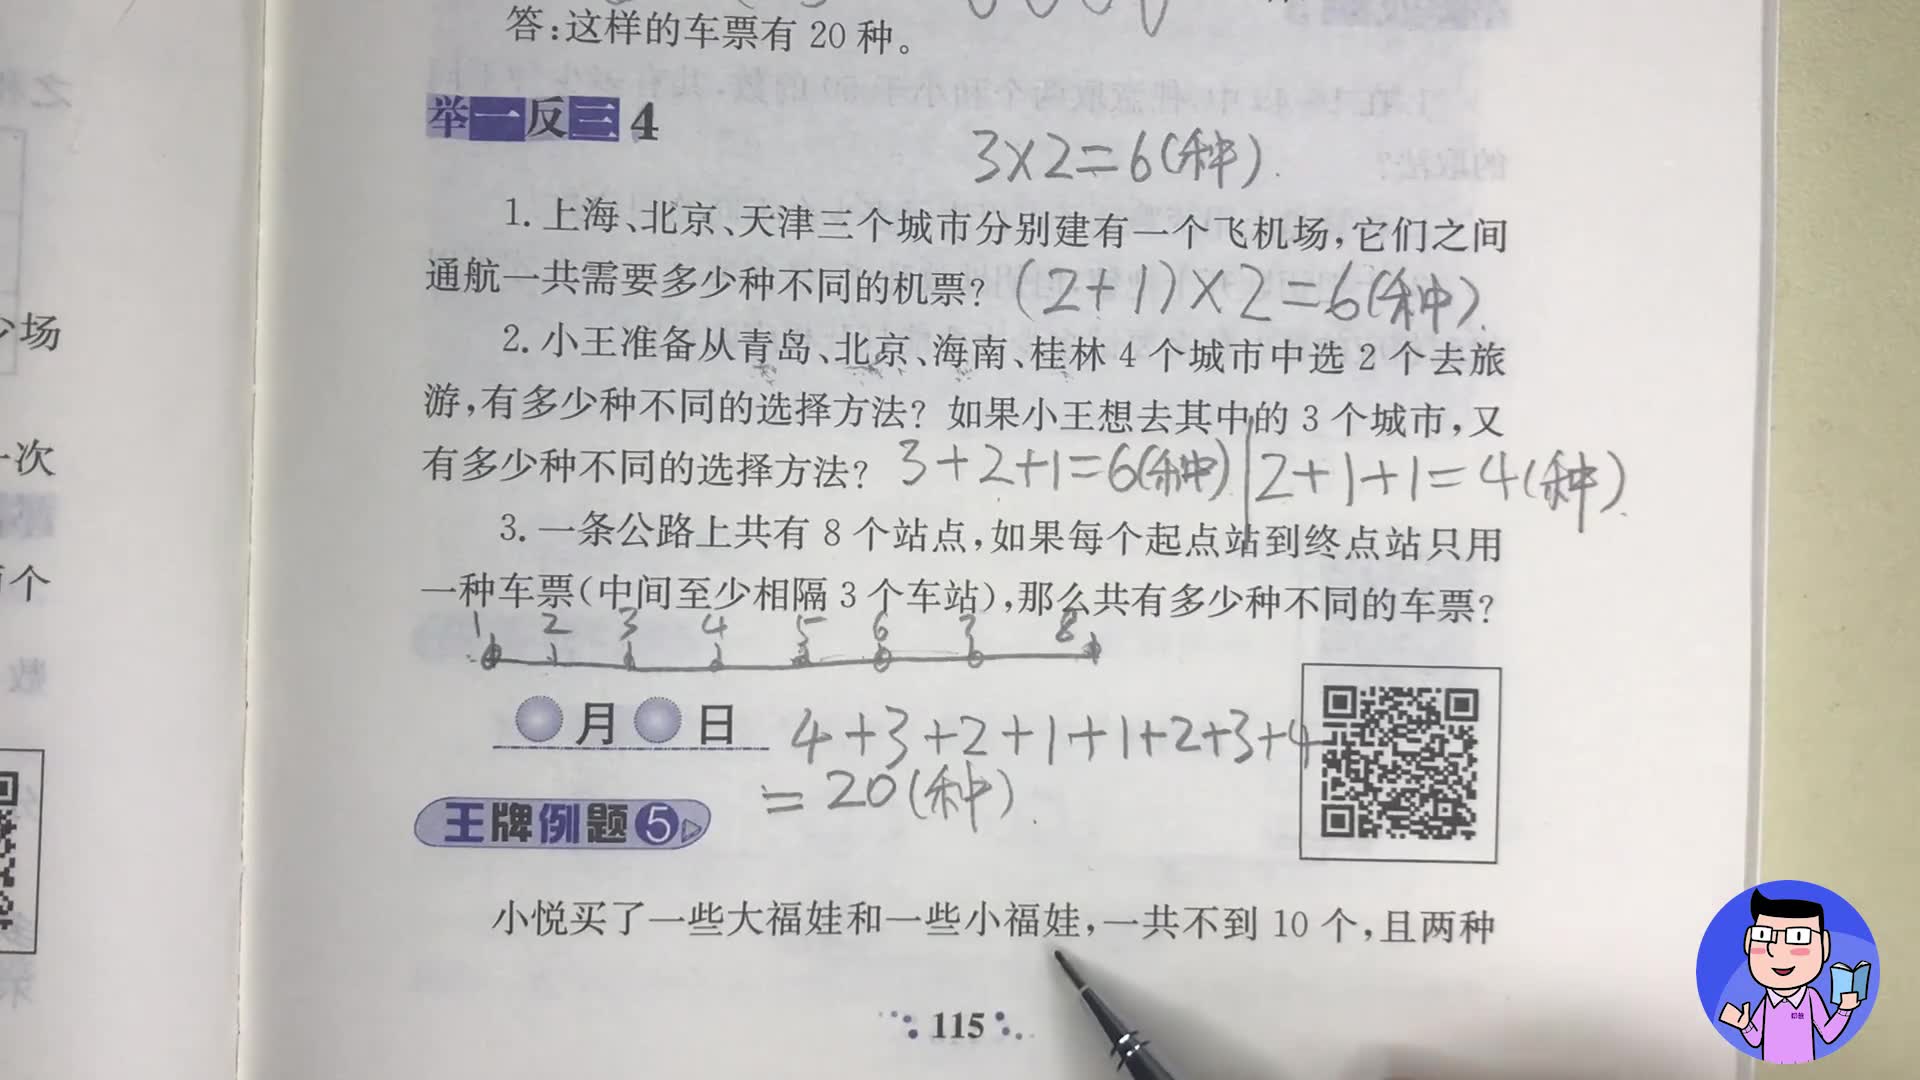 答:这样的车票有 20 种。
举一反三 4
3×2=6(种).
1. 上海、北京、天津三个城市分别建有一个飞机场,它们之间
通航一共需要多少种不同的机票? (2+1)×2=6(种).
2. 小王准备从青岛、北京、海南、桂林 4 个城市中选 2 个去旅
游,有多少种不同的选择方法? 如果小王想去其中的 3 个城市,又
有多少种不同的选择方法? 3+2+1=6(种) 2+1+1=4(种).
3. 一条公路上共有 8 个站点,如果每个起点站到终点站只用
一种车票(中间至少相隔 3 个车站),那么共有多少种不同的车票?
1 2 3 4 5 6 7 8
月 日 4+3+2+1+1+2+3+4
=20(种).
王牌例题 5
小悦买了一些大福娃和一些小福娃,一共不到 10 个,且两种
115
场
次
个